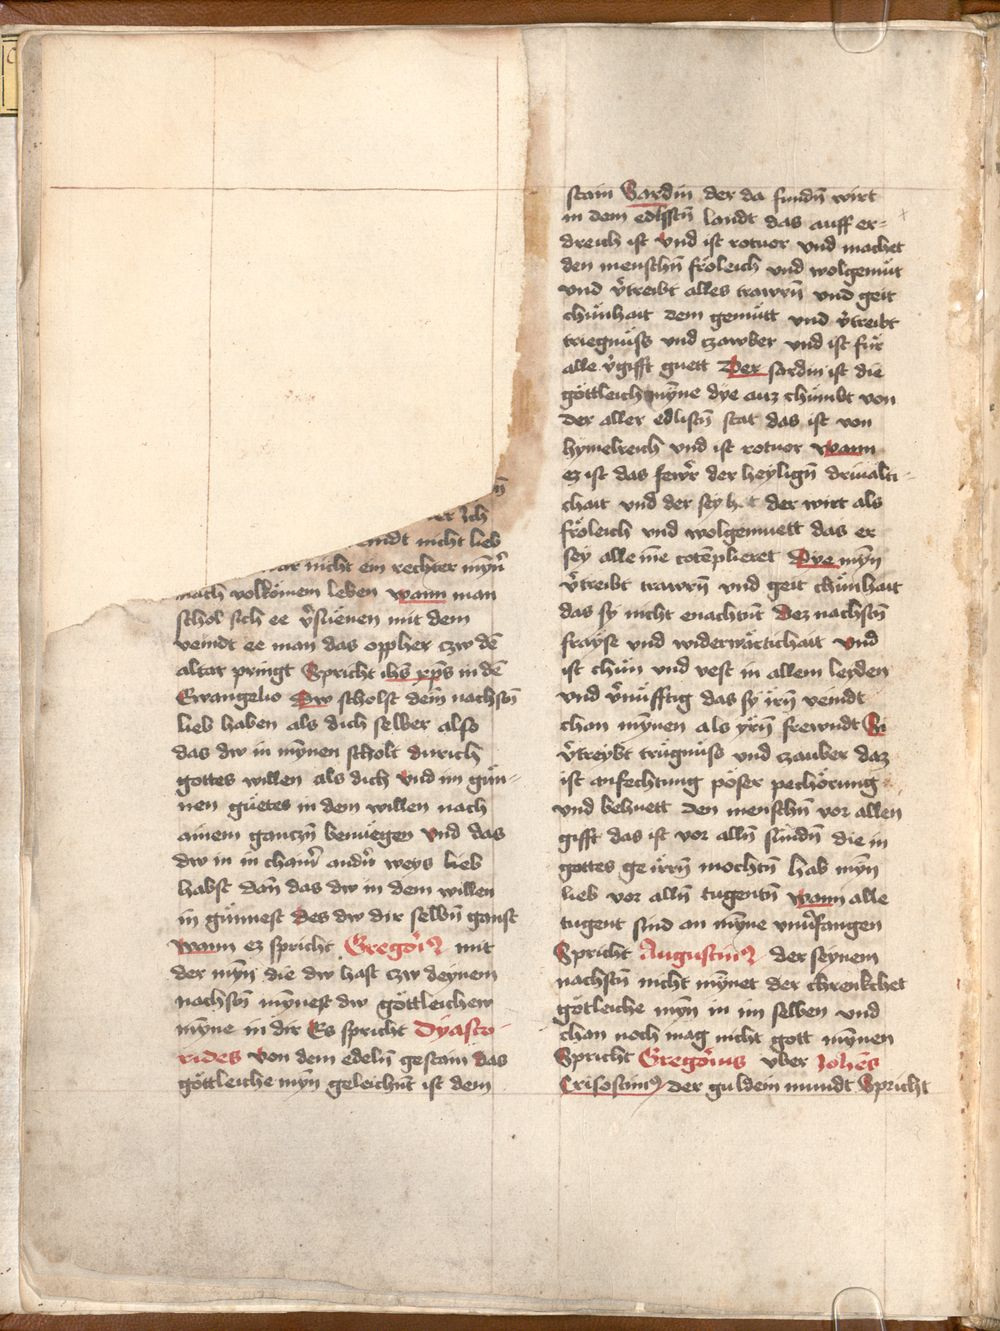 n̄
Ich
veindt nicht lieb
nicht ein rechter myn̄
nach volkömem leben wann man
schol sich ee v̄suenen mit dem
veindt ee man das oppher czw dē
altar pringt Spricht ihs xp̄s in dē
Ewangelio Dw scholst dem nachstn̄
lieb haben als dich selber also
das dw in mynen scholt durich
gottes willen als dich vnd im gün-
nen güetes in dem willen nach
ainem ganczn̄ benuegen vnd das
dw in in chain̄ andn̄ weys lieb
habst dan̄ das dw in dem willen
in günnest des dw dir selbn̄ ganst
wann ez spricht Gregori9 mit
der myn̄ die dw hast czw deynem
nachstn̄ mynest dw göttleichew
myne in dir Es spricht Dyasco-
rides von dem edeln̄ gestain das
göttleiche myn̄ geleichn̄t ist dem
stain Sardin der da fundn̄ wirt
in dem edlistn̄ landt das auff er-
dreich ist vnd ist rotuar vnd machet
den menschn̄ fröleich vnd wolgemüt
vnd v̄treibt alles trawrn̄ vnd geit
chünhait dem gemütt vnd v̄treibt
triegnüss vnd czawber vnd ist für
alle v̄gifft guett Der sardin ist die
göttleich myne dye auz chümbt von
der aller edlistn̄ stat das ist von
hymelreich vnd ist rotuor wann
ez ist das fewr̄ der heylign̄ driualti-
chait vnd der sey hat der wirt als
fröleich vnd wolgemuett das er
sey alle cotēplieret Dye myn̄
v̄treibt trawrn̄ vnd geit chünhait
das sy nicht enachtn̄t Dez nachstn̄
frayse vnd widerwärtichait vnd
ist chün vnd vest in allem leyden
vnd v̄nüfftig das sy irn̄ veindt
chan mynen als yrn̄ frewndt Si
v̄treybt trügnüss vnd czauber daz
ist anfechtung pöser pechörung
vnd behuett den menschn̄ vor allen
gifft das ist vor alln̄ sündn̄ die in
gottes ge irrn̄ mochtn̄ hab myn̄
lieb vor alln̄ tugentn̄ wann alle
tugent sind an myne vnu̇fangen
Spricht Augustin9 der seynem
nachstn̄ nicht mynet der chrenkchet
götleiche myn̄ in im selben vnd
chan noch mag nicht gott mynen
Spricht Gregorius vber Johēs
Crisostim9 der guldein mundt Spricht